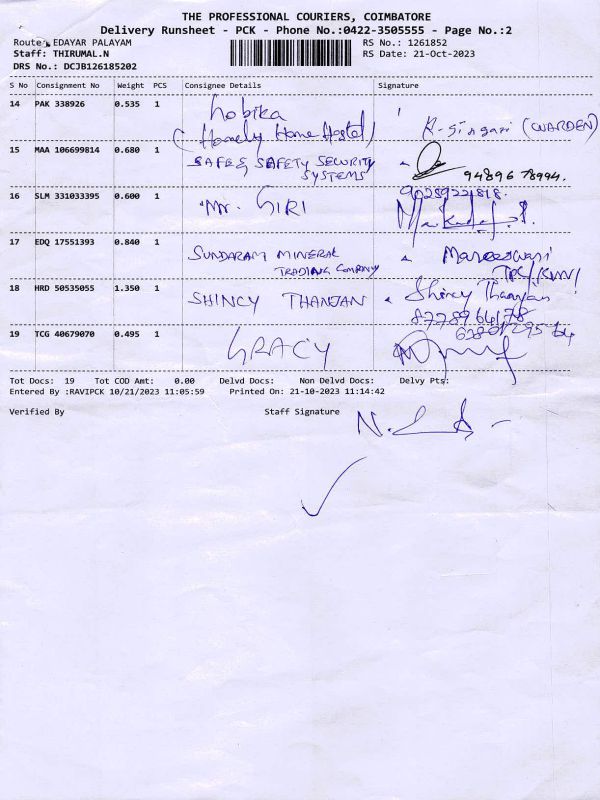 THE PROFESSIONAL COURIERS, COIMBATORE
Delivery Runsheet - PCK - Phone No.:0422-3505555 - Page No.:2
Route: EDAYAR PALAYAM RS No.: 1261852
Staff: THIRUMAL.N RS Date: 21-Oct-2023
DRS No.: DCJB126185202
S No Consignment No Weight PCS Consignee Details Signature
14 PAK 338926 0.535 1 Lobika
(Homely Home Hostel) (WARDEN)
15 MAA 106699814 0.680 1 SAFE & SAFETY SECURITY
SYSTEMS 94896 78994.
16 SLM 331033395 0.600 1 Mr. GIRI
17 EDQ 17551393 0.840 1 SUNDARAM MINERAL
TRADING COMPANY
18 HRD 50535055 1.350 1 SHINCY THANJAN Shincy Thanjan
8778966178
19 TCG 40679070 0.495 1 GRACY
Tot Docs: 19 Tot COD Amt: 0.00 Delvd Docs: Non Delvd Docs: Delvy Pts:
Entered By :RAVIPCK 10/21/2023 11:05:59 Printed On: 21-10-2023 11:14:42
Verified By Staff Signature